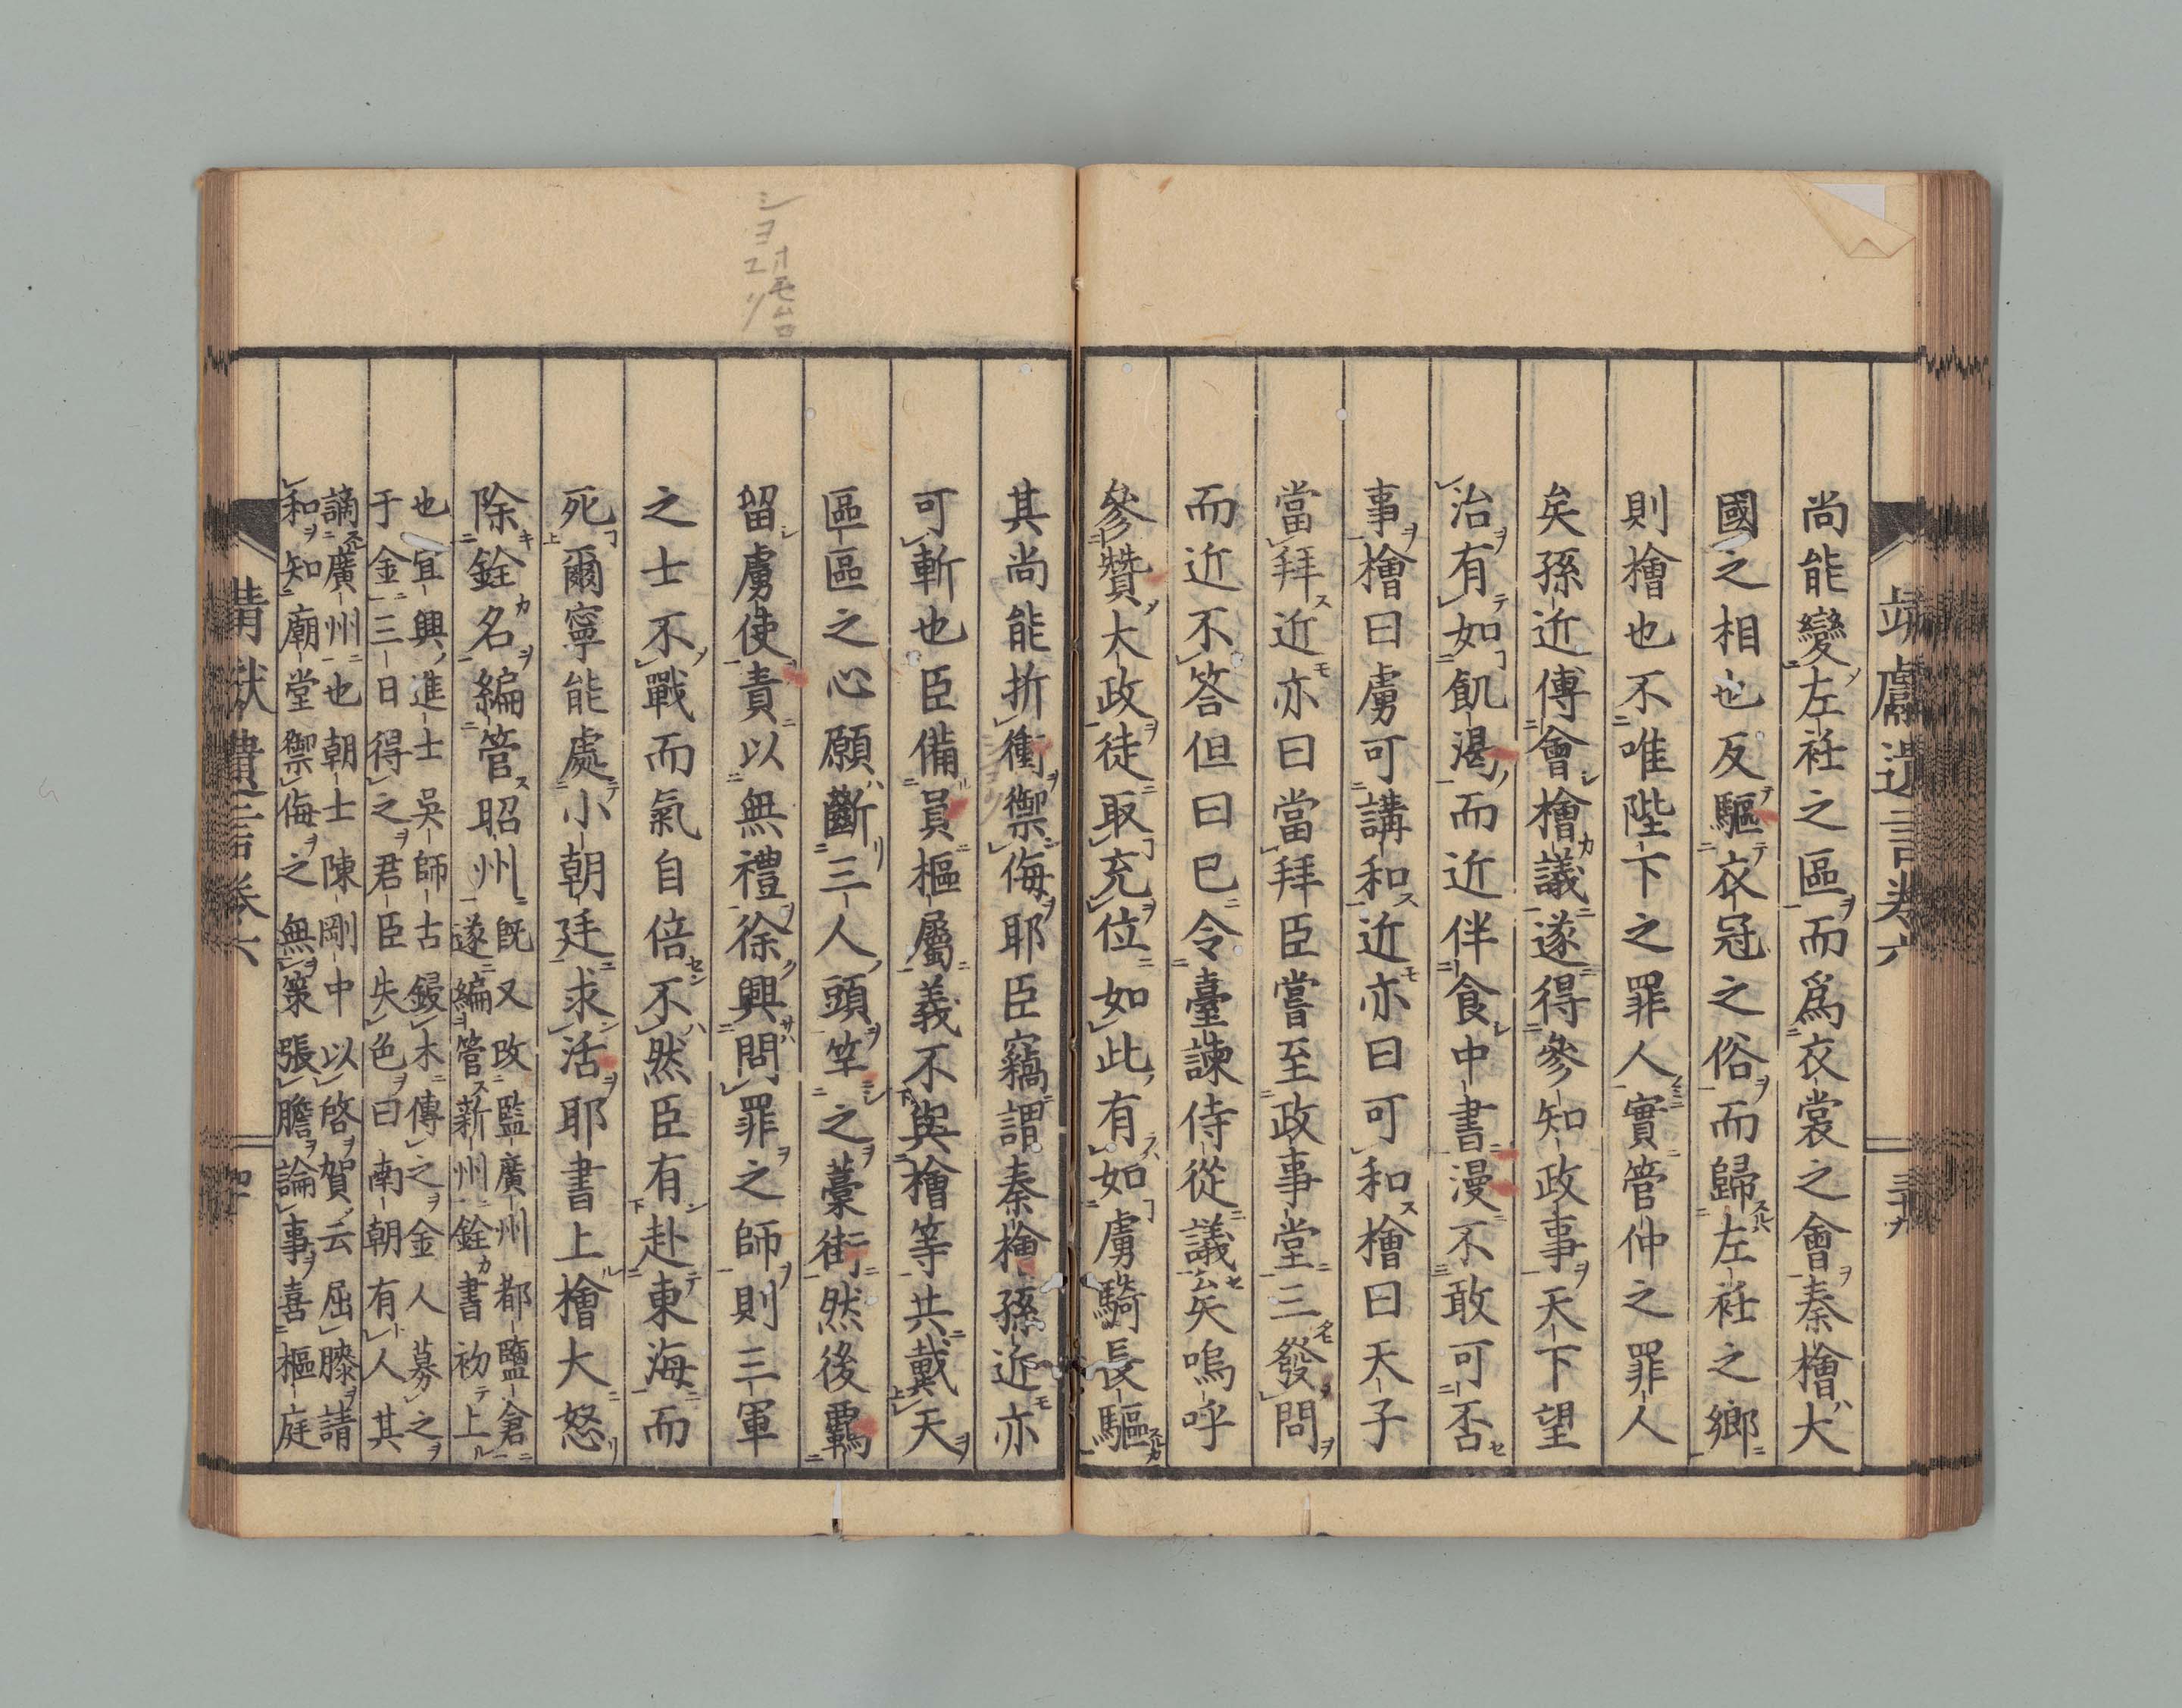 靖獻遺言卷六
三十九
尚能變左衽之區而爲衣裳之會秦檜大
國之相也反驅衣冠之俗而歸左衽之鄉
則檜也不唯陛下之罪人實管仲之罪人
矣孫近傅會檜議遂得參知政事天下望
治有如飢渴而近伴食中書漫不敢可否
事檜曰虜可講和近亦曰可和檜曰天子
當拜近亦曰當拜臣嘗至政事堂三發問
而近不答但曰已令臺諫侍從議矣嗚呼
參贊大政徒取充位如此有如虜騎長驅
其尚能折衝禦侮耶臣竊謂秦檜孫近亦
可斬也臣備員樞屬義不與檜等共戴天
區區之心願斷三人頭竿之藁街然後羈
留虜使責以無禮徐興問罪之師則三軍
之士不戰而氣自倍不然臣有赴東海而
死爾寧能處小朝廷求活耶書上檜大怒
除銓名編管昭州既又改監廣州都鹽倉
遂編管新州銓書初上
也宜興進士吳師古鋟木傳之金人募之
于金三日得之君臣失色曰南朝有人其
謫廣州也朝士陳剛中以啓賀云屈膝請
和知廟堂禦侮之無策張膽論事喜樞庭
靖獻遺言卷六
シヨユリ
オモムロ